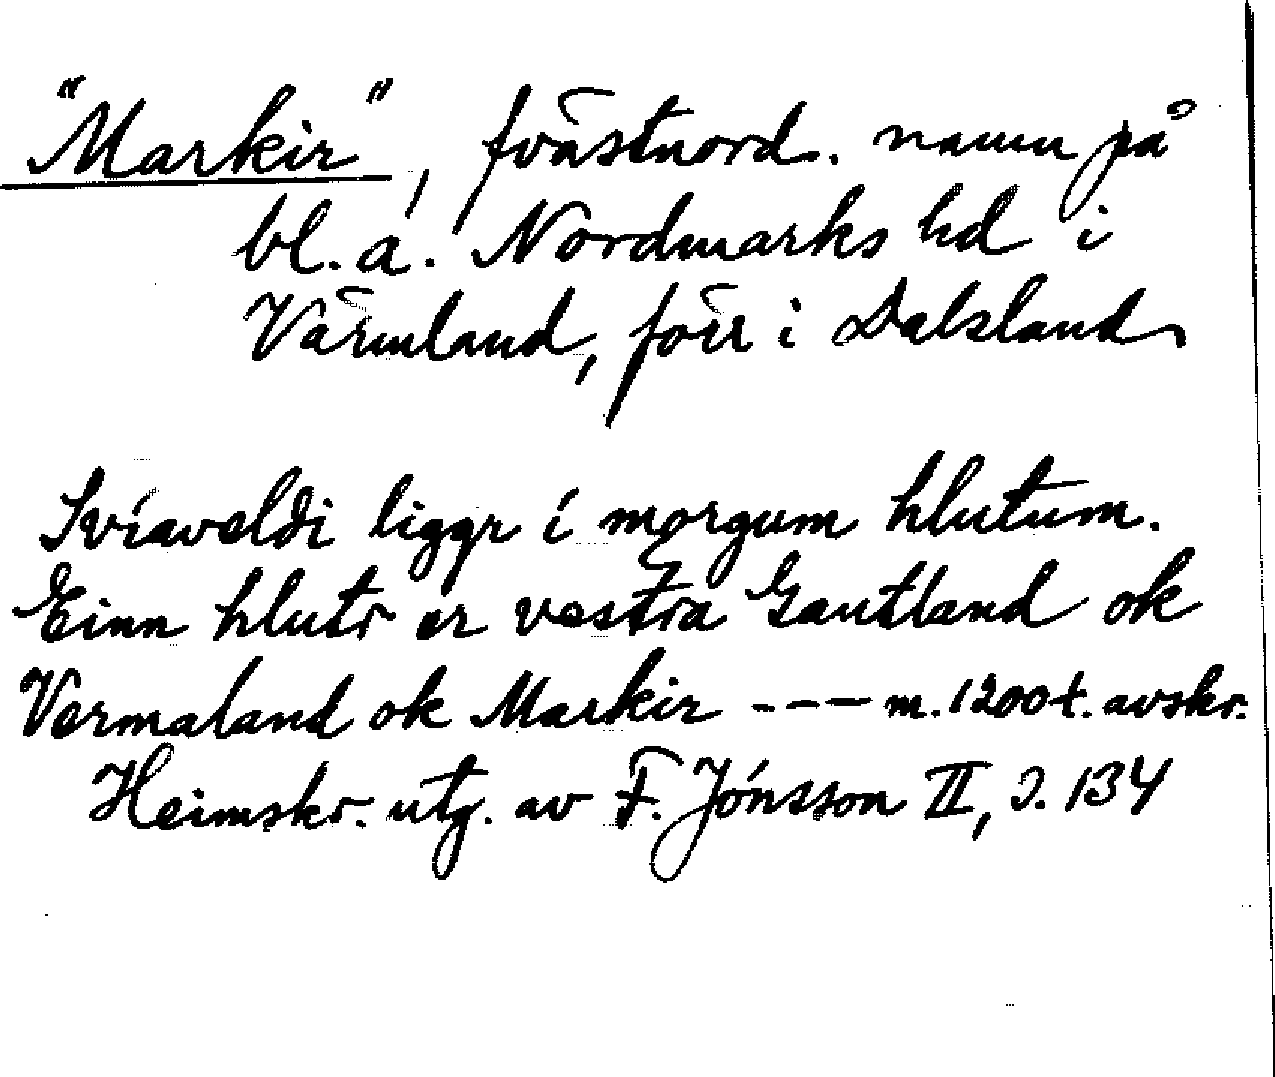 "Markir", fvästnord. namn på
bl.a. Nordmarks hd i
Värmland, förr i Dalsland
Svíaveldi liggr í mǫrgum hlutum.
Einn hlutr er vestra Gautland ok
Vermaland ok Markir --- m. 1200 t. avskr.
Heimskr. utg. av F. Jónsson II, s. 134